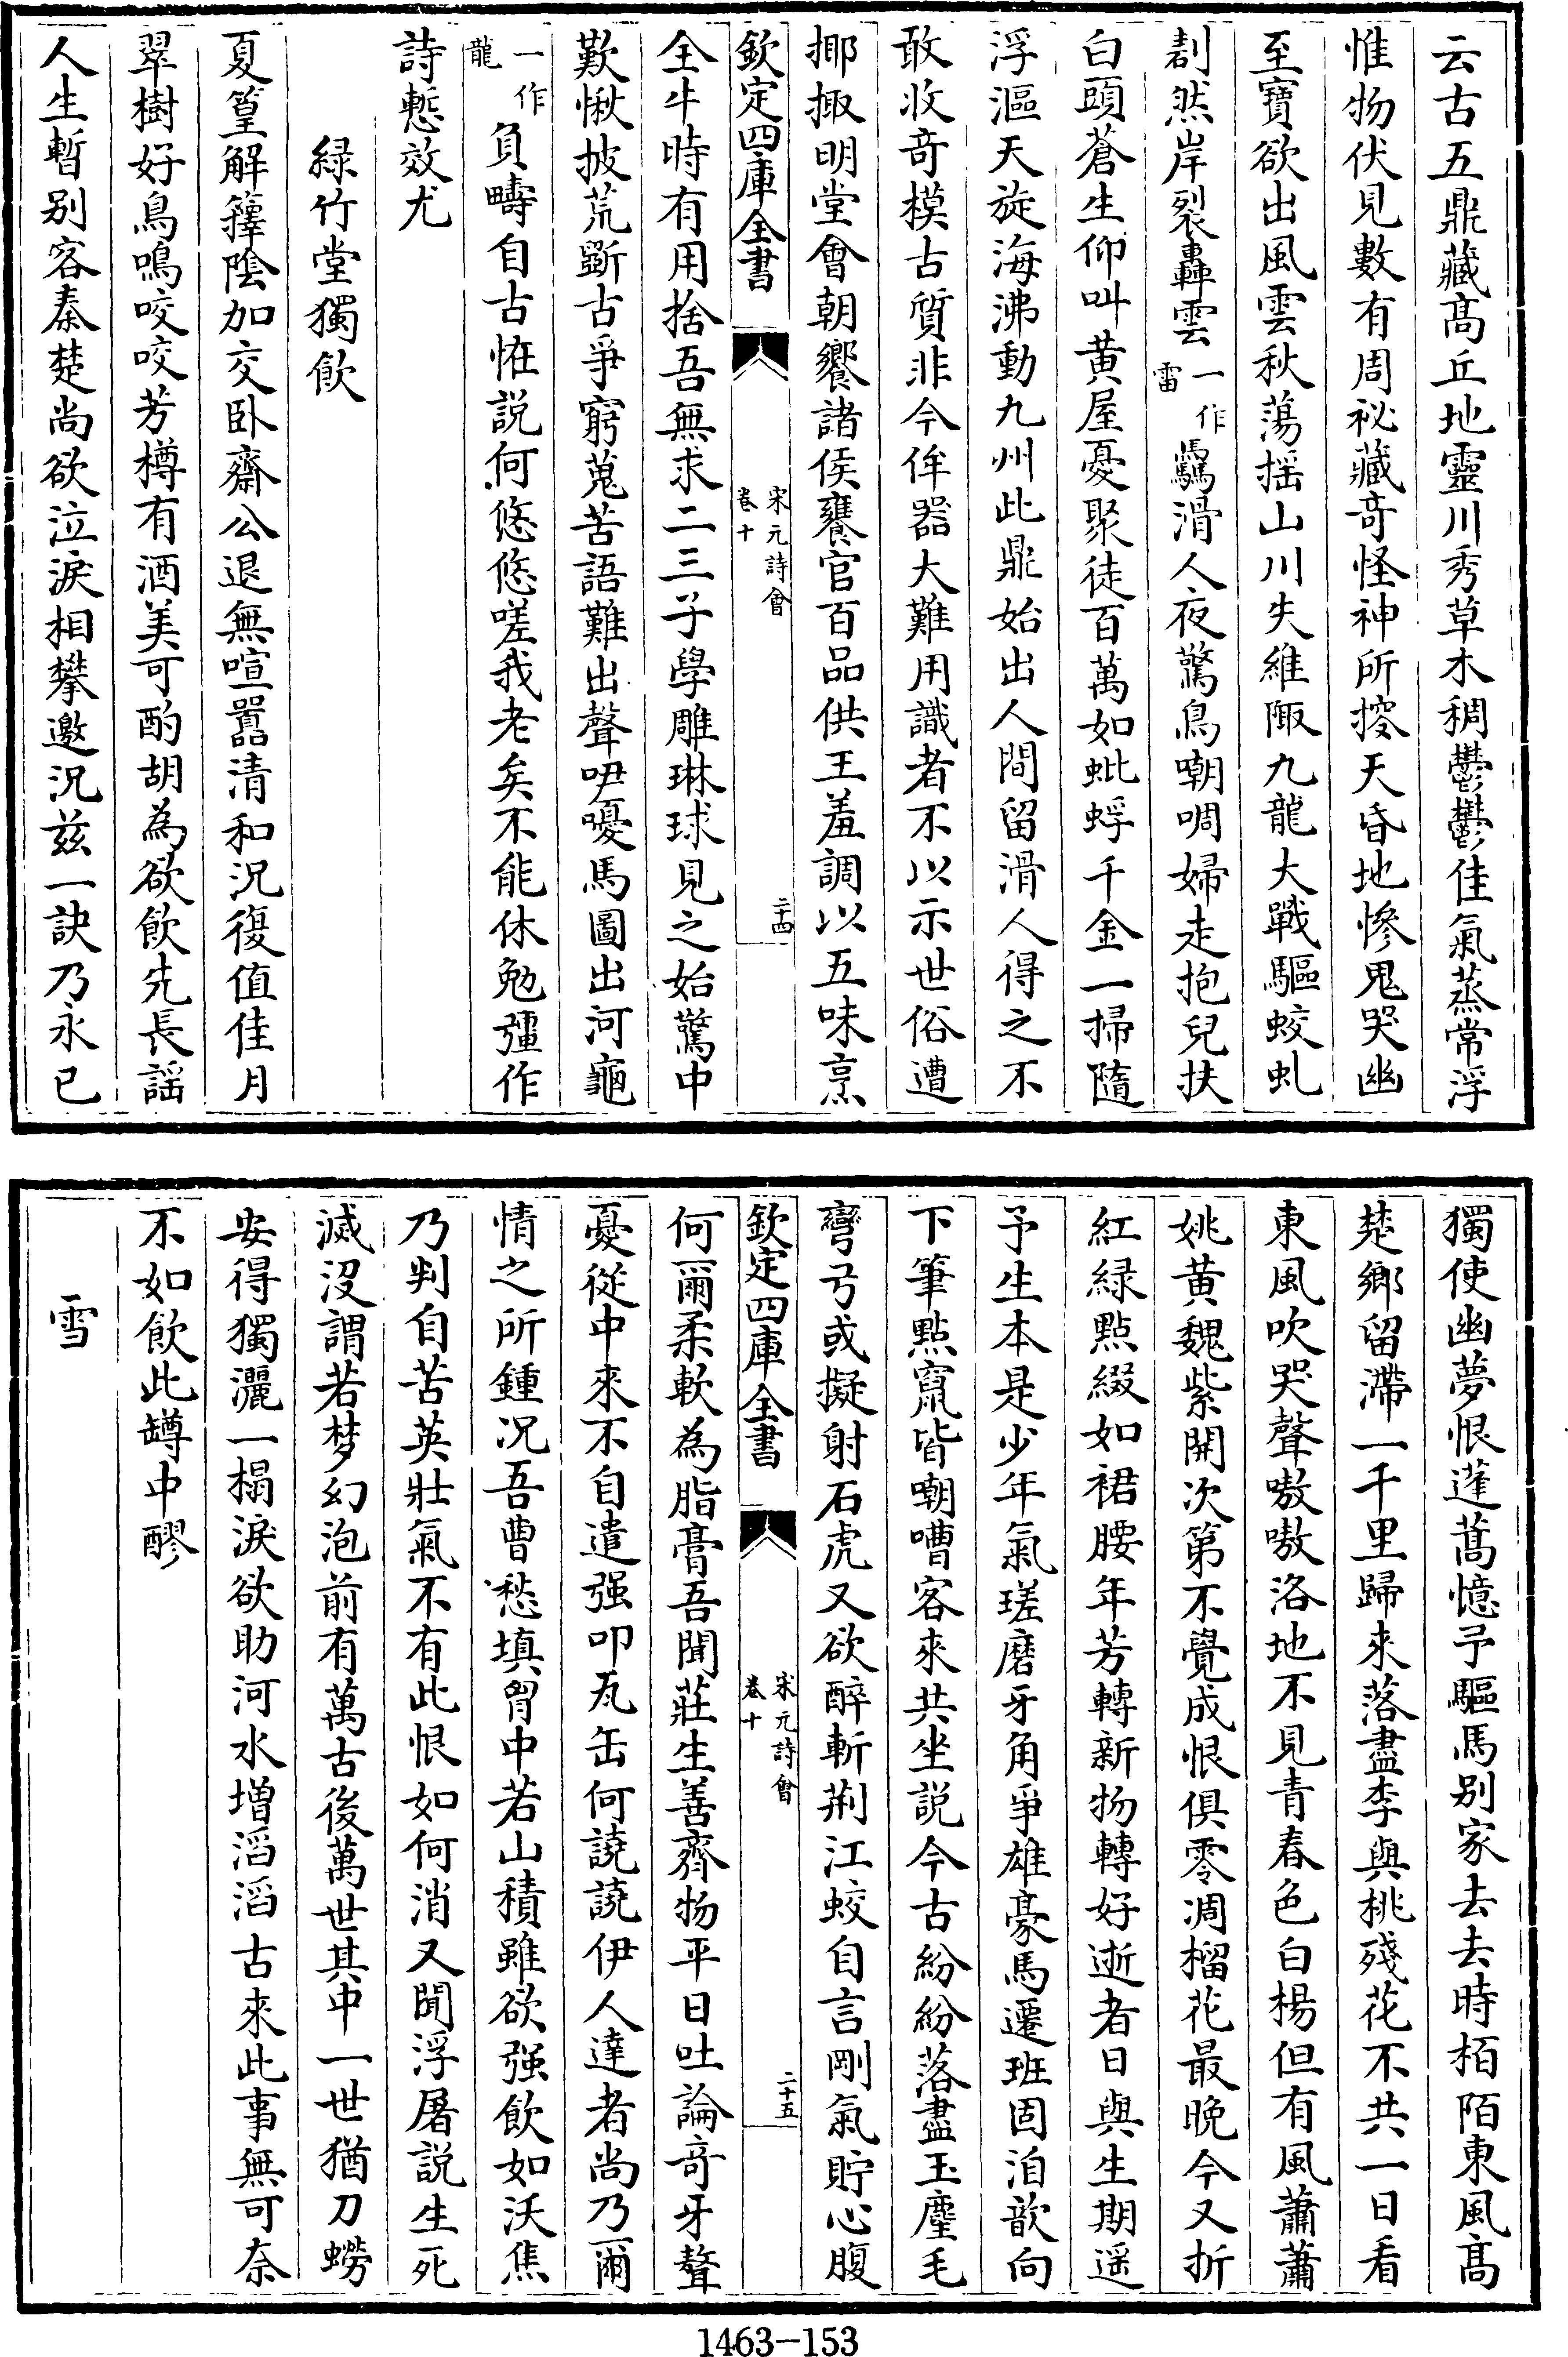 云古五鼎藏髙丘地靈川秀草木稠鬱鬱佳氣蒸常浮
惟物伏見數有周祕藏奇怪神所㨨天昏地慘鬼哭幽
至寳欲出風雲秋蕩揺山川失維陬九龍大戰驅蛟虬
割然岸裂轟雲一作雷驫滑人夜驚鳥嘲啁婦走抱兒扶
白頭蒼生仰叫黄屋憂聚徒百萬如蚍蜉千金一掃隨
浮漚天旋海沸動九州此鼎始出人間留滑人得之不
敢收奇模古質非今侔器大難用識者不以示世俗遭
揶揄明堂會朝饗諸侯饔官百品供王羞調以五味烹
欽定四庫全書
宋元詩會
卷十
二十四
全牛時有用捨吾無求二三子學雕琳球見之始驚中
歎愀披荒斵古爭窮蒐苦語難出聲吚嚘馬圖出河龜
一作龍負疇自古恠説何悠悠嗟我老矣不能休勉彊作
詩慙效尤
緑竹堂獨飲
夏篁解籜陰加交卧齋公退無喧囂清和況復值佳月
翠樹好鳥鳴咬咬芳樽有酒美可酌胡為欲飲先長謡
人生暫别客秦楚尚欲泣淚相攀邀況兹一訣乃永已
獨使幽夢恨蓬蒿憶予驅馬别家去去時栢陌東風髙
楚鄉留滯一千里歸來落盡李與桃殘花不共一日看
東風吹哭聲嗷嗷洛地不見青春色白楊但有風蕭蕭
姚黄魏紫開次第不覺成恨俱零凋榴花最晩今又折
紅緑點綴如裙腰年芳轉新物轉好逝者日與生期遥
予生本是少年氣瑳磨牙角爭雄豪馬遷班固洎歆向
下筆點竄皆嘲嘈客來共坐説今古紛紛落盡玉麈毛
彎弓或擬射石虎又欲醉斬荆江蛟自言剛氣貯心腹
欽定四庫全書
宋元詩會
卷十
二十五
何爾柔軟為脂膏吾聞莊生善齊物平日吐論奇牙聱
憂從中來不自遣强叩瓦缶何譊譊伊人達者尚乃爾
情之所鍾況吾曹愁填胷中若山積雖欲强飲如沃焦
乃判自苦英壯氣不有此恨如何消又聞浮屠説生死
滅没謂若梦幻泡前有萬古後萬世其中一世猶刀蟧
安得獨灑一榻淚欲助河水增滔滔古來此事無可奈
不如飲此罇中醪
雪
1463-153